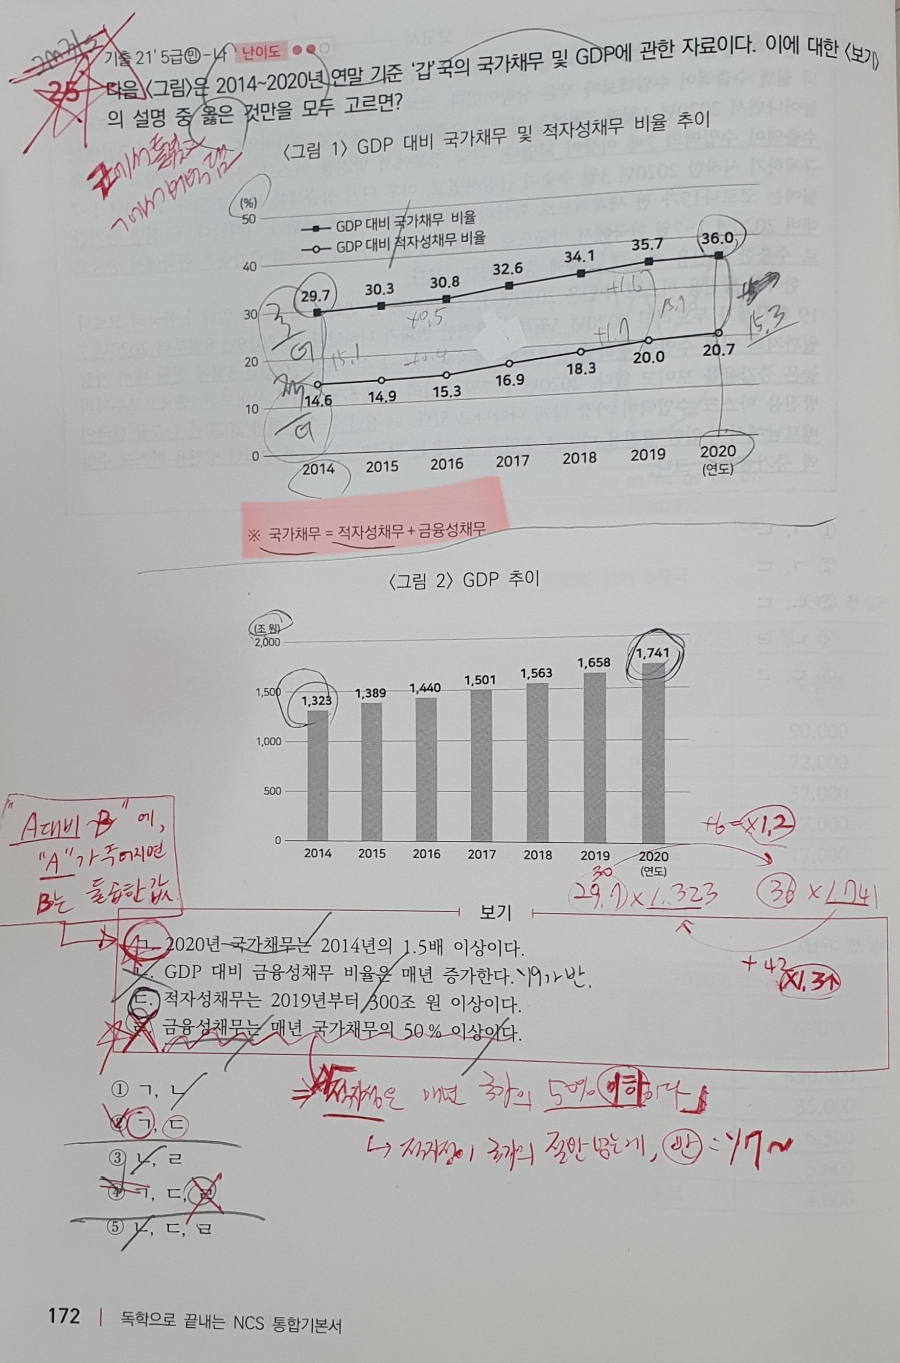 기출 21' 5급㉠-나 난이도
25 다음 〈그림〉은 2014~2020년 연말 기준 '갑'국의 국가채무 및 GDP에 관한 자료이다. 이에 대한 〈보기〉
의 설명 중 옳은 것만을 모두 고르면?
〈그림 1〉 GDP 대비 국가채무 및 적자성채무 비율 추이
(%)
50
GDP 대비 국가채무 비율
GDP 대비 적자성채무 비율
40
30
20
10
0
29.7 30.3 30.8 32.6 34.1 35.7 36.0
+0.5 +1.6 15.7 15.3
15.1 +0.4 +1.7
14.6 14.9 15.3 16.9 18.3 20.0 20.7
2014 2015 2016 2017 2018 2019 2020
(연도)
※ 국가채무 = 적자성채무 + 금융성채무
〈그림 2〉 GDP 추이
(조 원)
2,000
1,500
1,000
500
0
1,323 1,389 1,440 1,501 1,563 1,658 1,741
2014 2015 2016 2017 2018 2019 2020
(연도)
"A대비 B"에,
"A"가 주어지면
B는 둘곱한값
+6 = ×1.2
30
29.7 × 1.323 36 × 1.741
+42
×1.3↑
보기
ㄱ. 2020년 국가채무는 2014년의 1.5배 이상이다.
ㄴ. GDP 대비 금융성채무 비율은 매년 증가한다.
ㄷ. 적자성채무는 2019년부터 300조 원 이상이다.
ㄹ. 금융성채무는 매년 국가채무의 50% 이상이다.
⇒ 적자성은 매년 국가의 50% 이하다
① ㄱ, ㄴ
② ㄱ, ㄷ
③ ㄴ, ㄹ
④ ㄱ, ㄷ, ㄹ
⑤ ㄴ, ㄷ, ㄹ
172 | 독학으로 끝내는 NCS 통합기본서